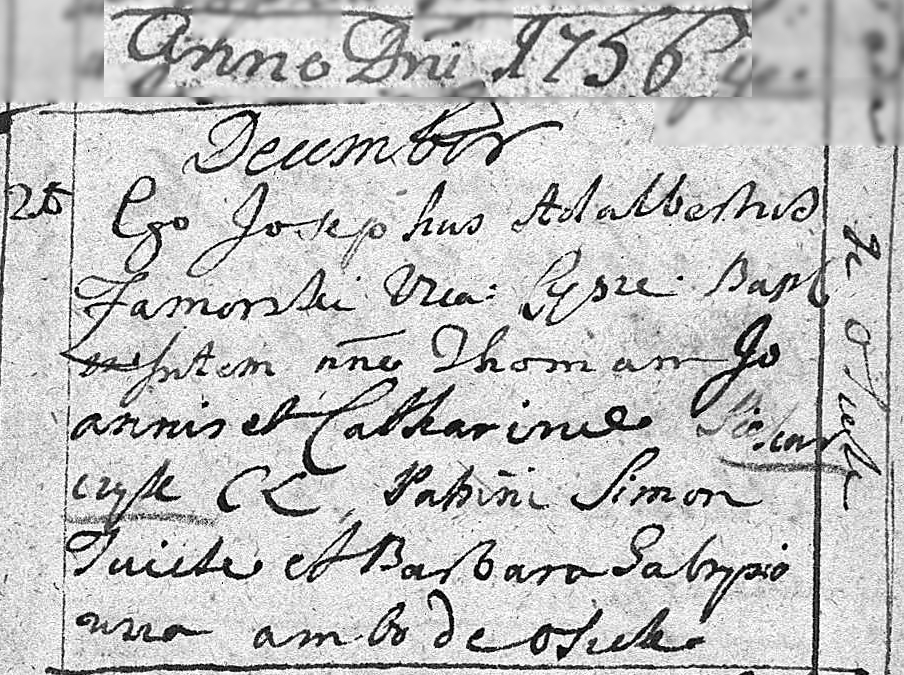 Anno Dni 1756
December
26 Ego Josephus Adalbertus
Zamorski Vica: Lypsze: Bapt
Infntem nñe Thomam Jo
annis et Catharinae
czyk CL, Patrini Simon
et Barbara Gabrysio
wna ambo de Osiek
z Osiek